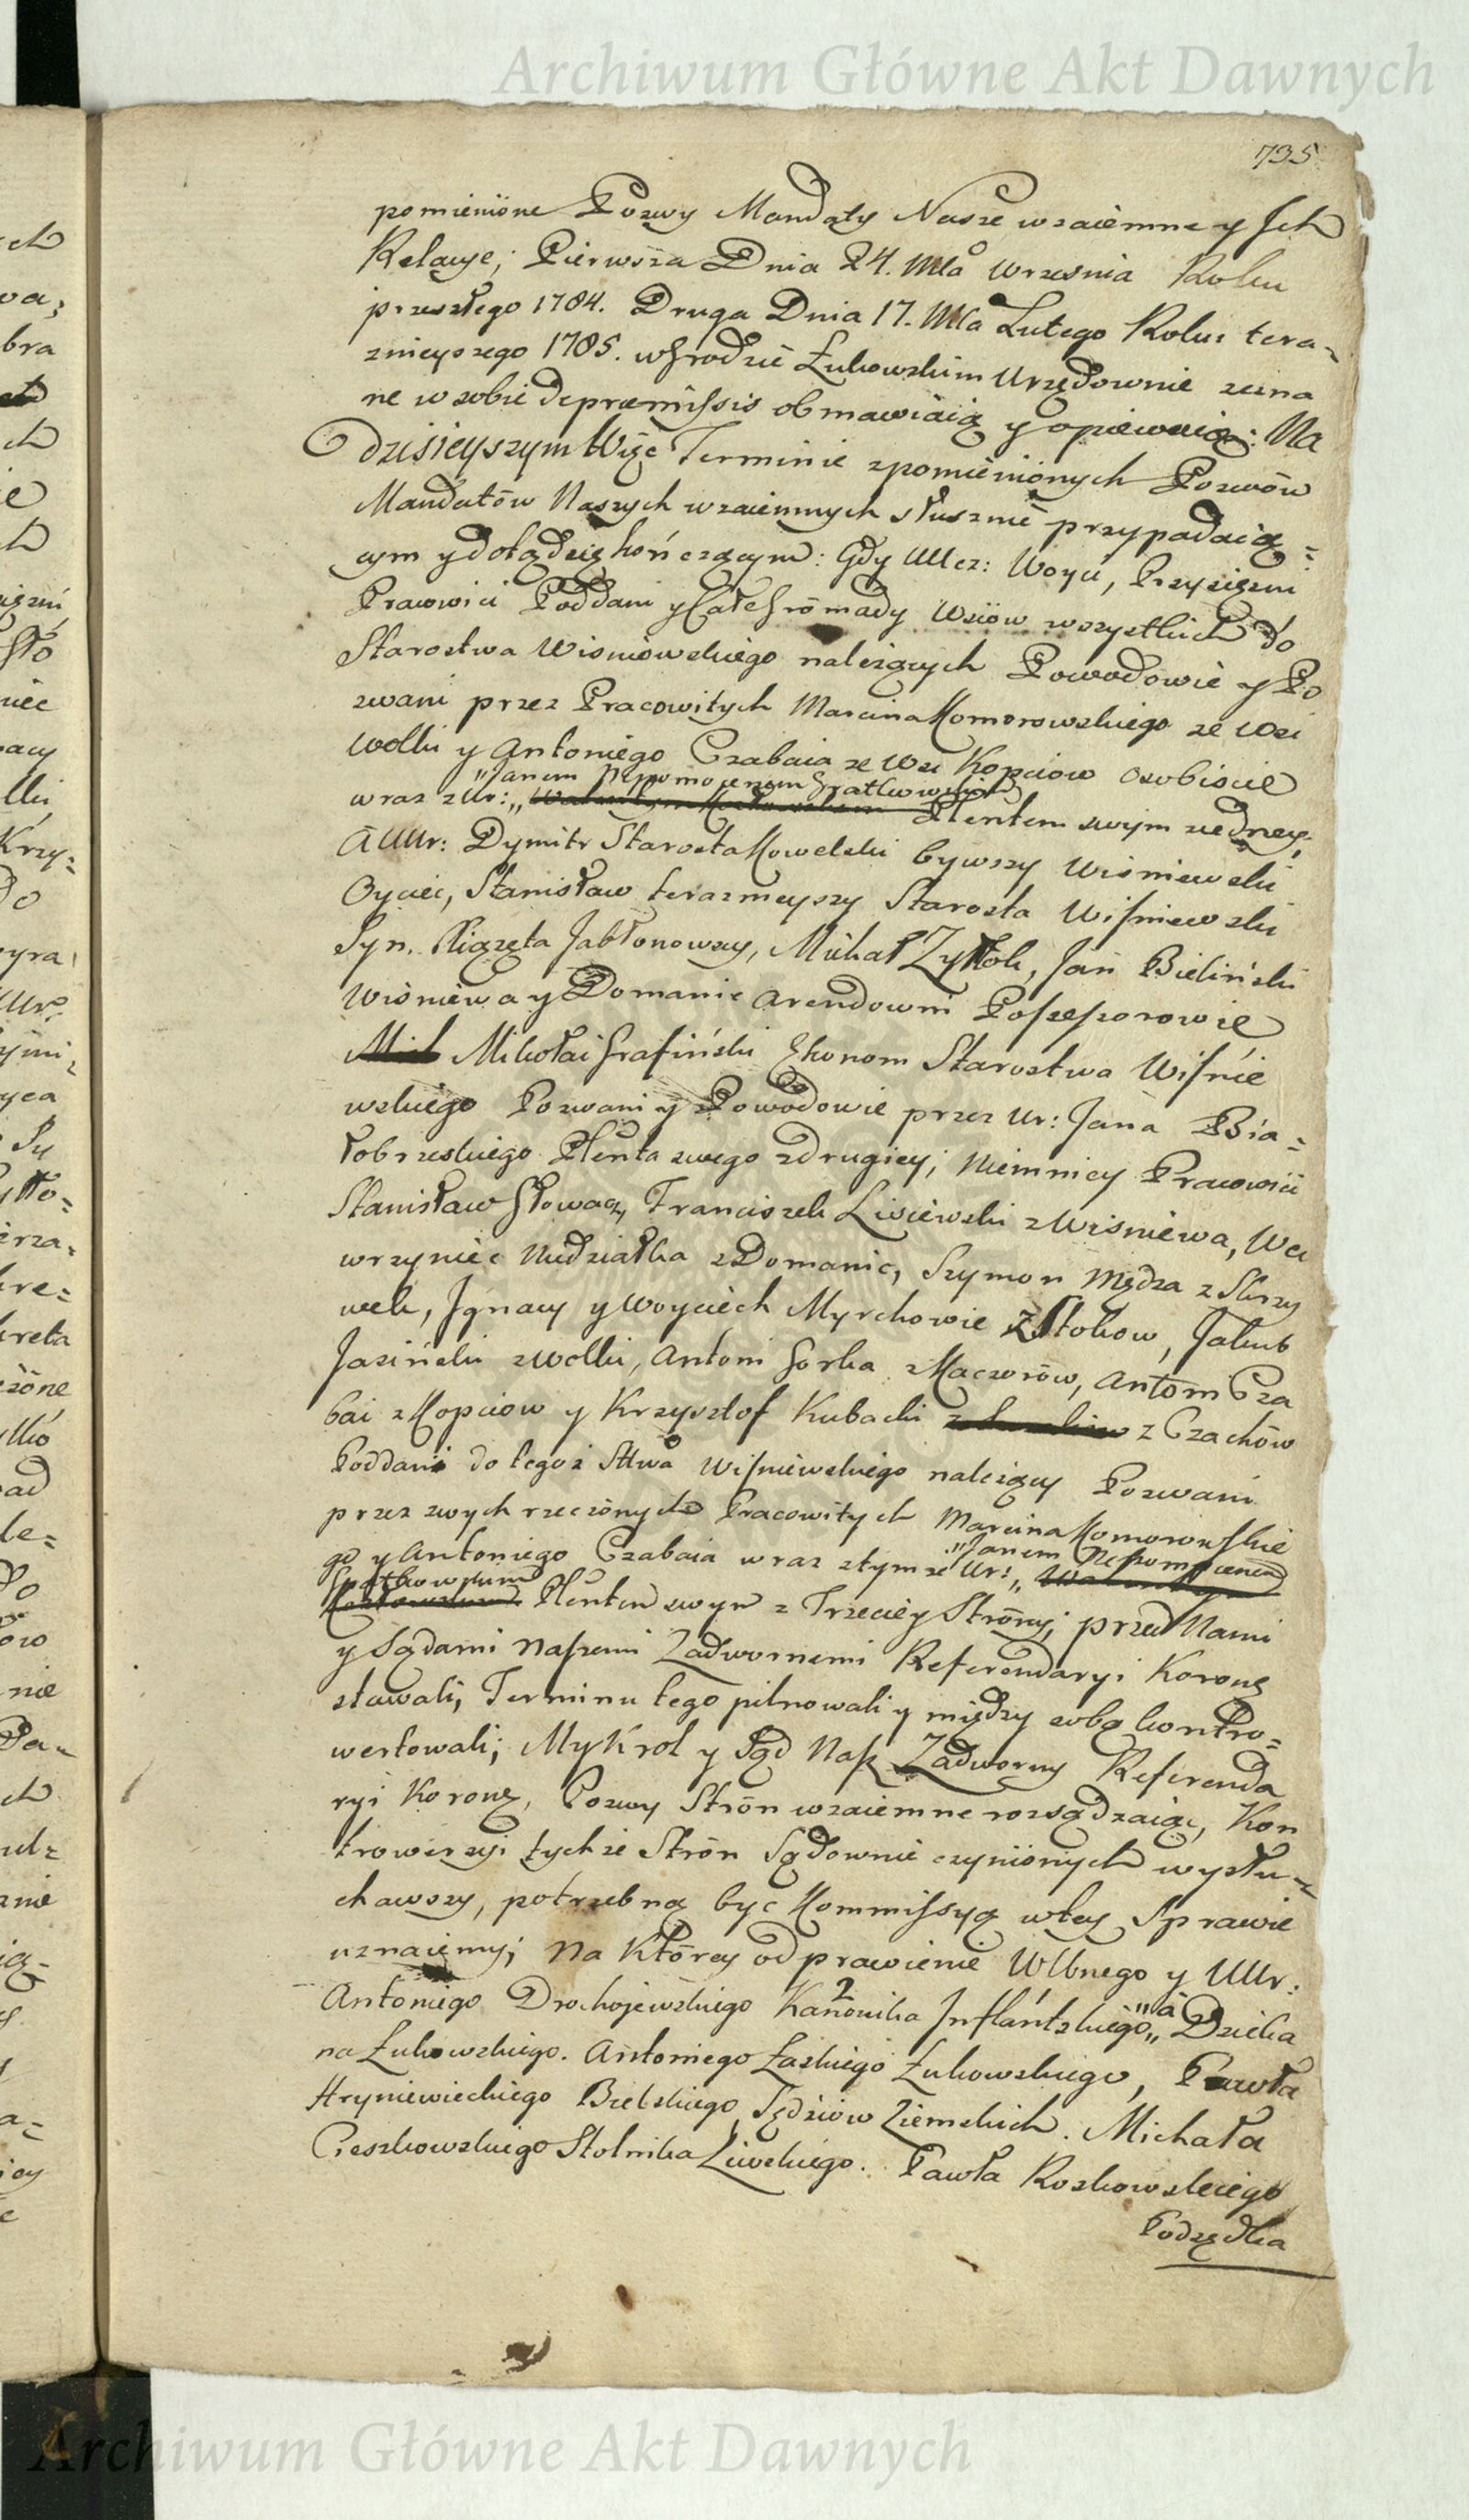 Archiwum Główne Akt Dawnych
735
pomienione Pozwy Mandaty Nasze wzaiemne y Jch
Relacye; Pierwsza Dnia 24. Mca Wrzesnia Roku
przeszłego 1784. Druga Dnia 17. Mca Lutego Roku tera-
znieyszego 1785. w Grodzie Łukowskim Urzędownie zezna
ne w sobie de præmissis obmawiaią y opiewaią: Na
dzisieyszym Więc Terminie zpomienionych Pozwów
Mandatów Naszych wzaiemnych słusznie przypadaią=
cym y dotąd się kończącym: Gdy UUcz: Woyci, Przysiężni
Pracowici Poddani y Całe Gromady Wsiow wszystkich do
Starostwa Wisniowskiego należących Powodowie y Po
zwani przez Pracowitych Marcina Komorowskiego ze Wsi
Wolki y Antoniego Czabaia ze Wsi Kopciow osobiscie
"Janem Nepomocenem Gratkowskim
wraz z Ur: " Plentem swym z iedney;
A UUr: Dymitr Starosta Kowelski bywszy Wisniewski
Oyciec, Stanisław teraznieyszy Starosta Wisniewski
Syn. Xiążęta Jabłonowscy, Michał Zyttok, Jan Bielinski
Wisniewa y Domanic Arendowni Possessorowie
Mich Mikołai Grafiński Ekonom Starostwa Wisnie
wskiego Pozwani y Powodowie przez Ur: Jana Bia=
łobrzeskiego Plenta swego z drugiey; Niemniey Pracowici
Stanisław Głowacz, Franciszek Liciewski z Wisniewa, Wa
wrzyniec Nudziałka z Domanic, Szymon Mędza z Skrzy
wek, Jgnacy y Woyciech Myrchowie z Stokow, Jakub
Jasiński z Wolki, Antoni Gorka z Maczorów, Antoni Cza
bai z Kopciow y Krzysztof Kubacki z Czachów
Poddani do tegoż Sttwa Wisniewskiego należący Pozwani
przez swych rzeczonych Pracowitych Marcina Komorowskie
go y Antoniego Czabaia wraz z tymże Ur: " "Janem Nepomocenem
Gratkowskim Plentem swym z Trzeciey Strony; przed Nami
y Sądami Naszemi Zadwornemi Referendaryi Koronę
stawali; Terminu tego pilnowali y między sobą kontro=
wertowali; My Krol y Sąd Nasz Zadworny Referenda
ryi Koronę, Pozwy Strón wzaiemne rozsądzaiąc, Kon
trowersyi tychże Strón Sądownie czynionych wysłu=
chawszy, potrzebną byc Kommissyą w tey Sprawie
uznaiemy; Na Którey odprawienie WUbnego y UUr:
Antoniego Drochojewskiego Kanonika Jnflantskiego "a" Dzieka
na Łukowskiego. Antoniego Łaskiego Łukowskiego, Pawła
Hryniewieckiego Bielskiego Sędziów Ziemskich. Michała
Cieszkowskiego Stolnika Liwskiego. Pawła Roskowskiego
Podsędka
Archiwum Główne Akt Dawnych